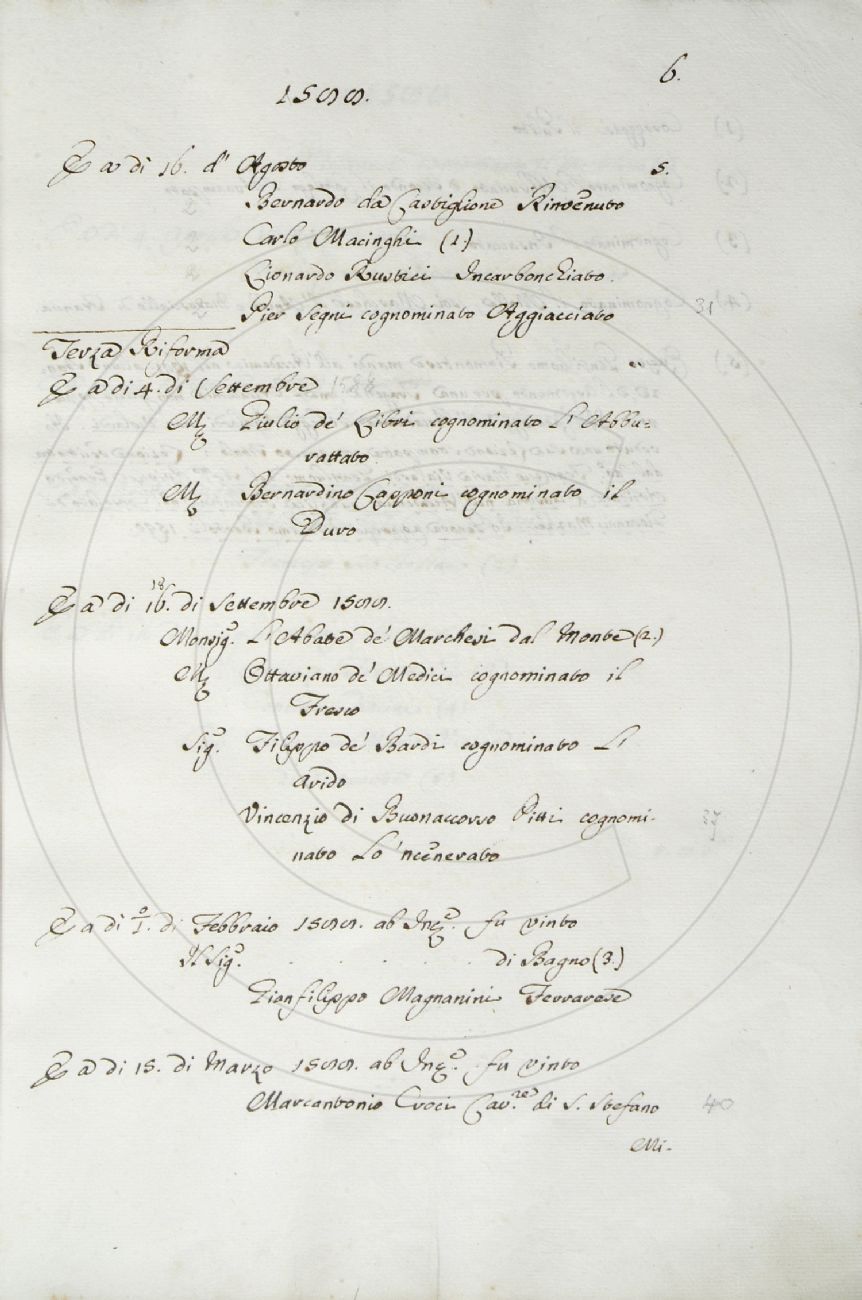 6.
1588.
E a di 16. d'Agosto 5.
Bernardo da Castiglione Rinvenuto
Carlo Macinghi (1)
Lionardo Rustici Incarbonchiato.
Pier Segni cognominato Aggiacciato 31
Terza Riforma
E a di 4. di Settembre 1588
M. Giulio de' Libri cognominato L'Abbu=
rattato
M. Bernardino Capponi cognominato il
Duro
E a di 16. 18 di Settembre 1588.
Monsig.o L'Abate de' Marchesi dal Monte (2.)
M. Ottaviano de' Medici cognominato il
Fresco
Sig.o Filippo de' Bardi cognominato L'
Arido
Vincenzio di Buonaccorso Pitti cognomi-
nato Lo 'ncenerato 37
E a di 1.o di Febbraio 1588. ab Inc.e fu vinto
Il Sig.o . . . . . . di Bagno (3.)
Gianfilippo Magnanini Ferrarese
E a di 15. di Marzo 1588. ab Inc.e fu vinto
Marcantonio Croci Cav.re di S. Stefano 40
Mi-